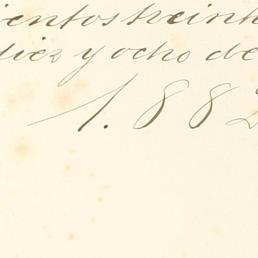 ientos treinta
diez y ocho de
1.882